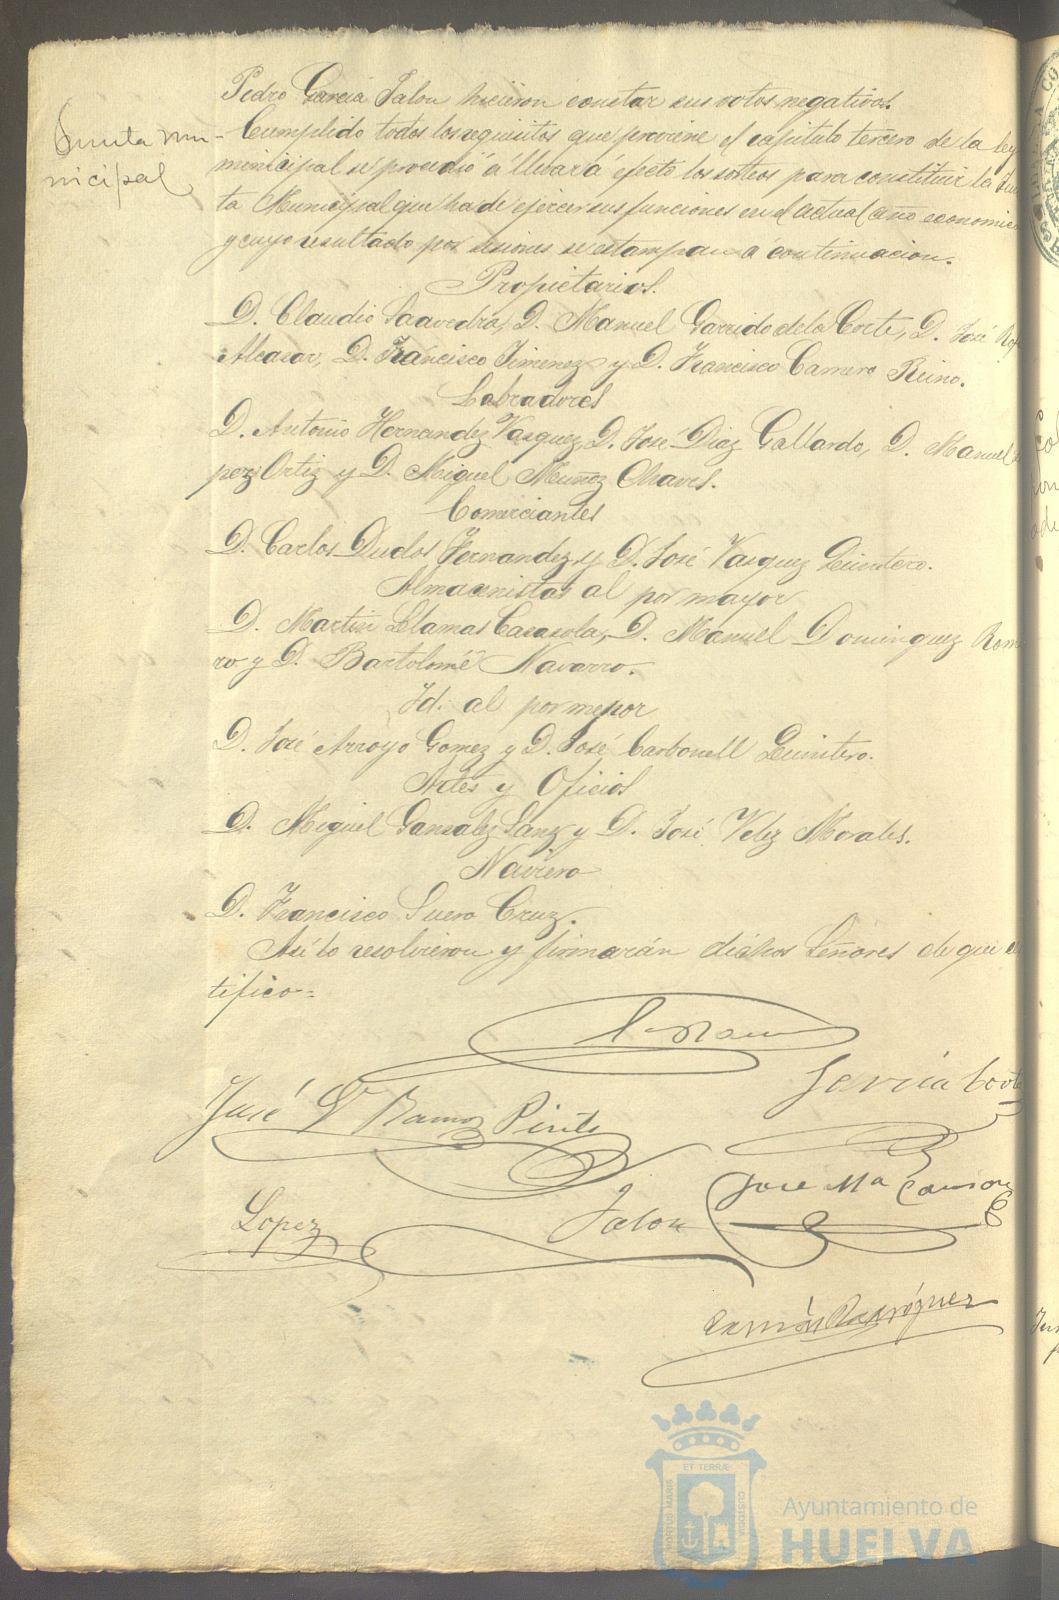 Pedro Garcia Jalon hicieron constar sus votos negativos.
Junta mu-
nicipal
Cumplido todos los requisitos que previene el capitulo tercero de la ley
municipal se procedió á llevar á efecto los sorteos para constituir la Jun
ta Municipal que ha de ejercer sus funciones en el actual año economico
y cuyo resultado por sesiones se estampan a continuacion.
Propietarios.
D. Claudio Saavedra, D. Manuel Garrido de la Corte, D. José
Alcasar, D. Francisco Jimenez y D. Francisco Carnero Reino.
Labradores
D. Antonio Hernandez Vasquez, D. José Diaz Gallardo, D. Manuel
pez Ortiz y D. Miguel Muñoz Chaves.
Comerciantes
D. Carlos Dudos Fernandez y D. José Vasquez Quintero.
Almacenistas al por mayor
D. Martin Llamas Casasola, D. Manuel Dominguez Rome
ro y D. Bartolomé Navarro.
Id. al por menor
D. José Arroyo Gomez y D. José Carbonell Quintero.
Artes y Oficios
D. Miguel Gonzalez Sanz y D. José Velez Morales.
Naviero
D. Francisco Suero Cruz.
Asi lo resolvieron y firmarán dichos Señores de que cer
tifico=
José Gª Ramos Pinto
Garcia Corte
Lopez
Jalon
Jose Mª
Ramón Rodríguez
PORTUS MARIS
ET TERRÆ
CUSTODIA
Ayuntamiento de
HUELVA